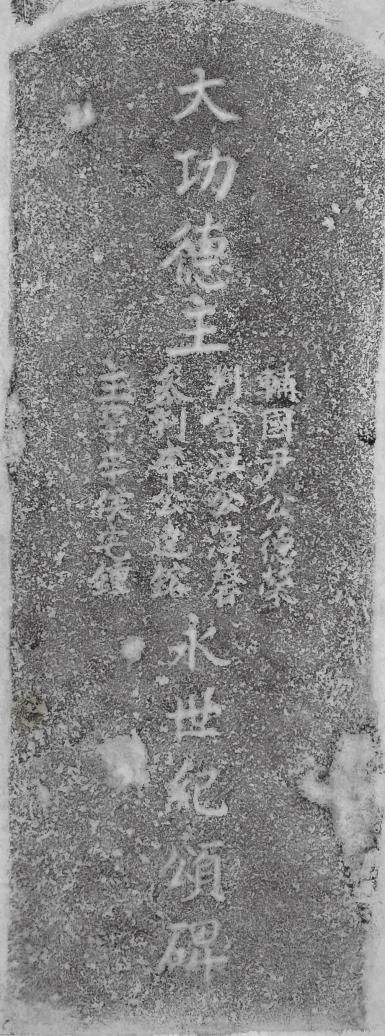 大功德主
輔國尹公德榮
判書洪公淳馨
參判李公建
主事
永世紀頌碑